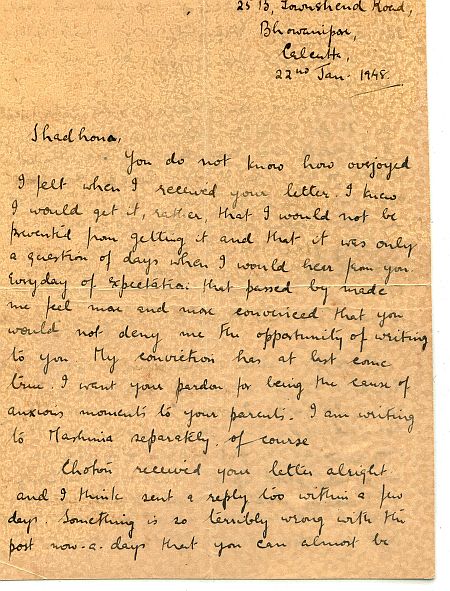 25 B, Townshend Road,
Bhowanipur,
Calcutta,
22nd Jan. 1948.
Shadhona,
You do not know how overjoyed
I felt when I received your letter. I knew
I would get it, rather, that I would not be
prevented from getting it and that it was only
a question of days when I would hear from you.
Everyday of expectation that passed by made
me feel more and more convinced that you
would not deny me the opportunity of writing
to you. My conviction has at last come
true. I want your pardon for being the cause of
anxious moments to your parents. I am writing
to Mashima separately, of course
Choton received your letter alright
and I think sent a reply too within a few
days. Something is so terribly wrong with the
post now-a-days that you can almost be